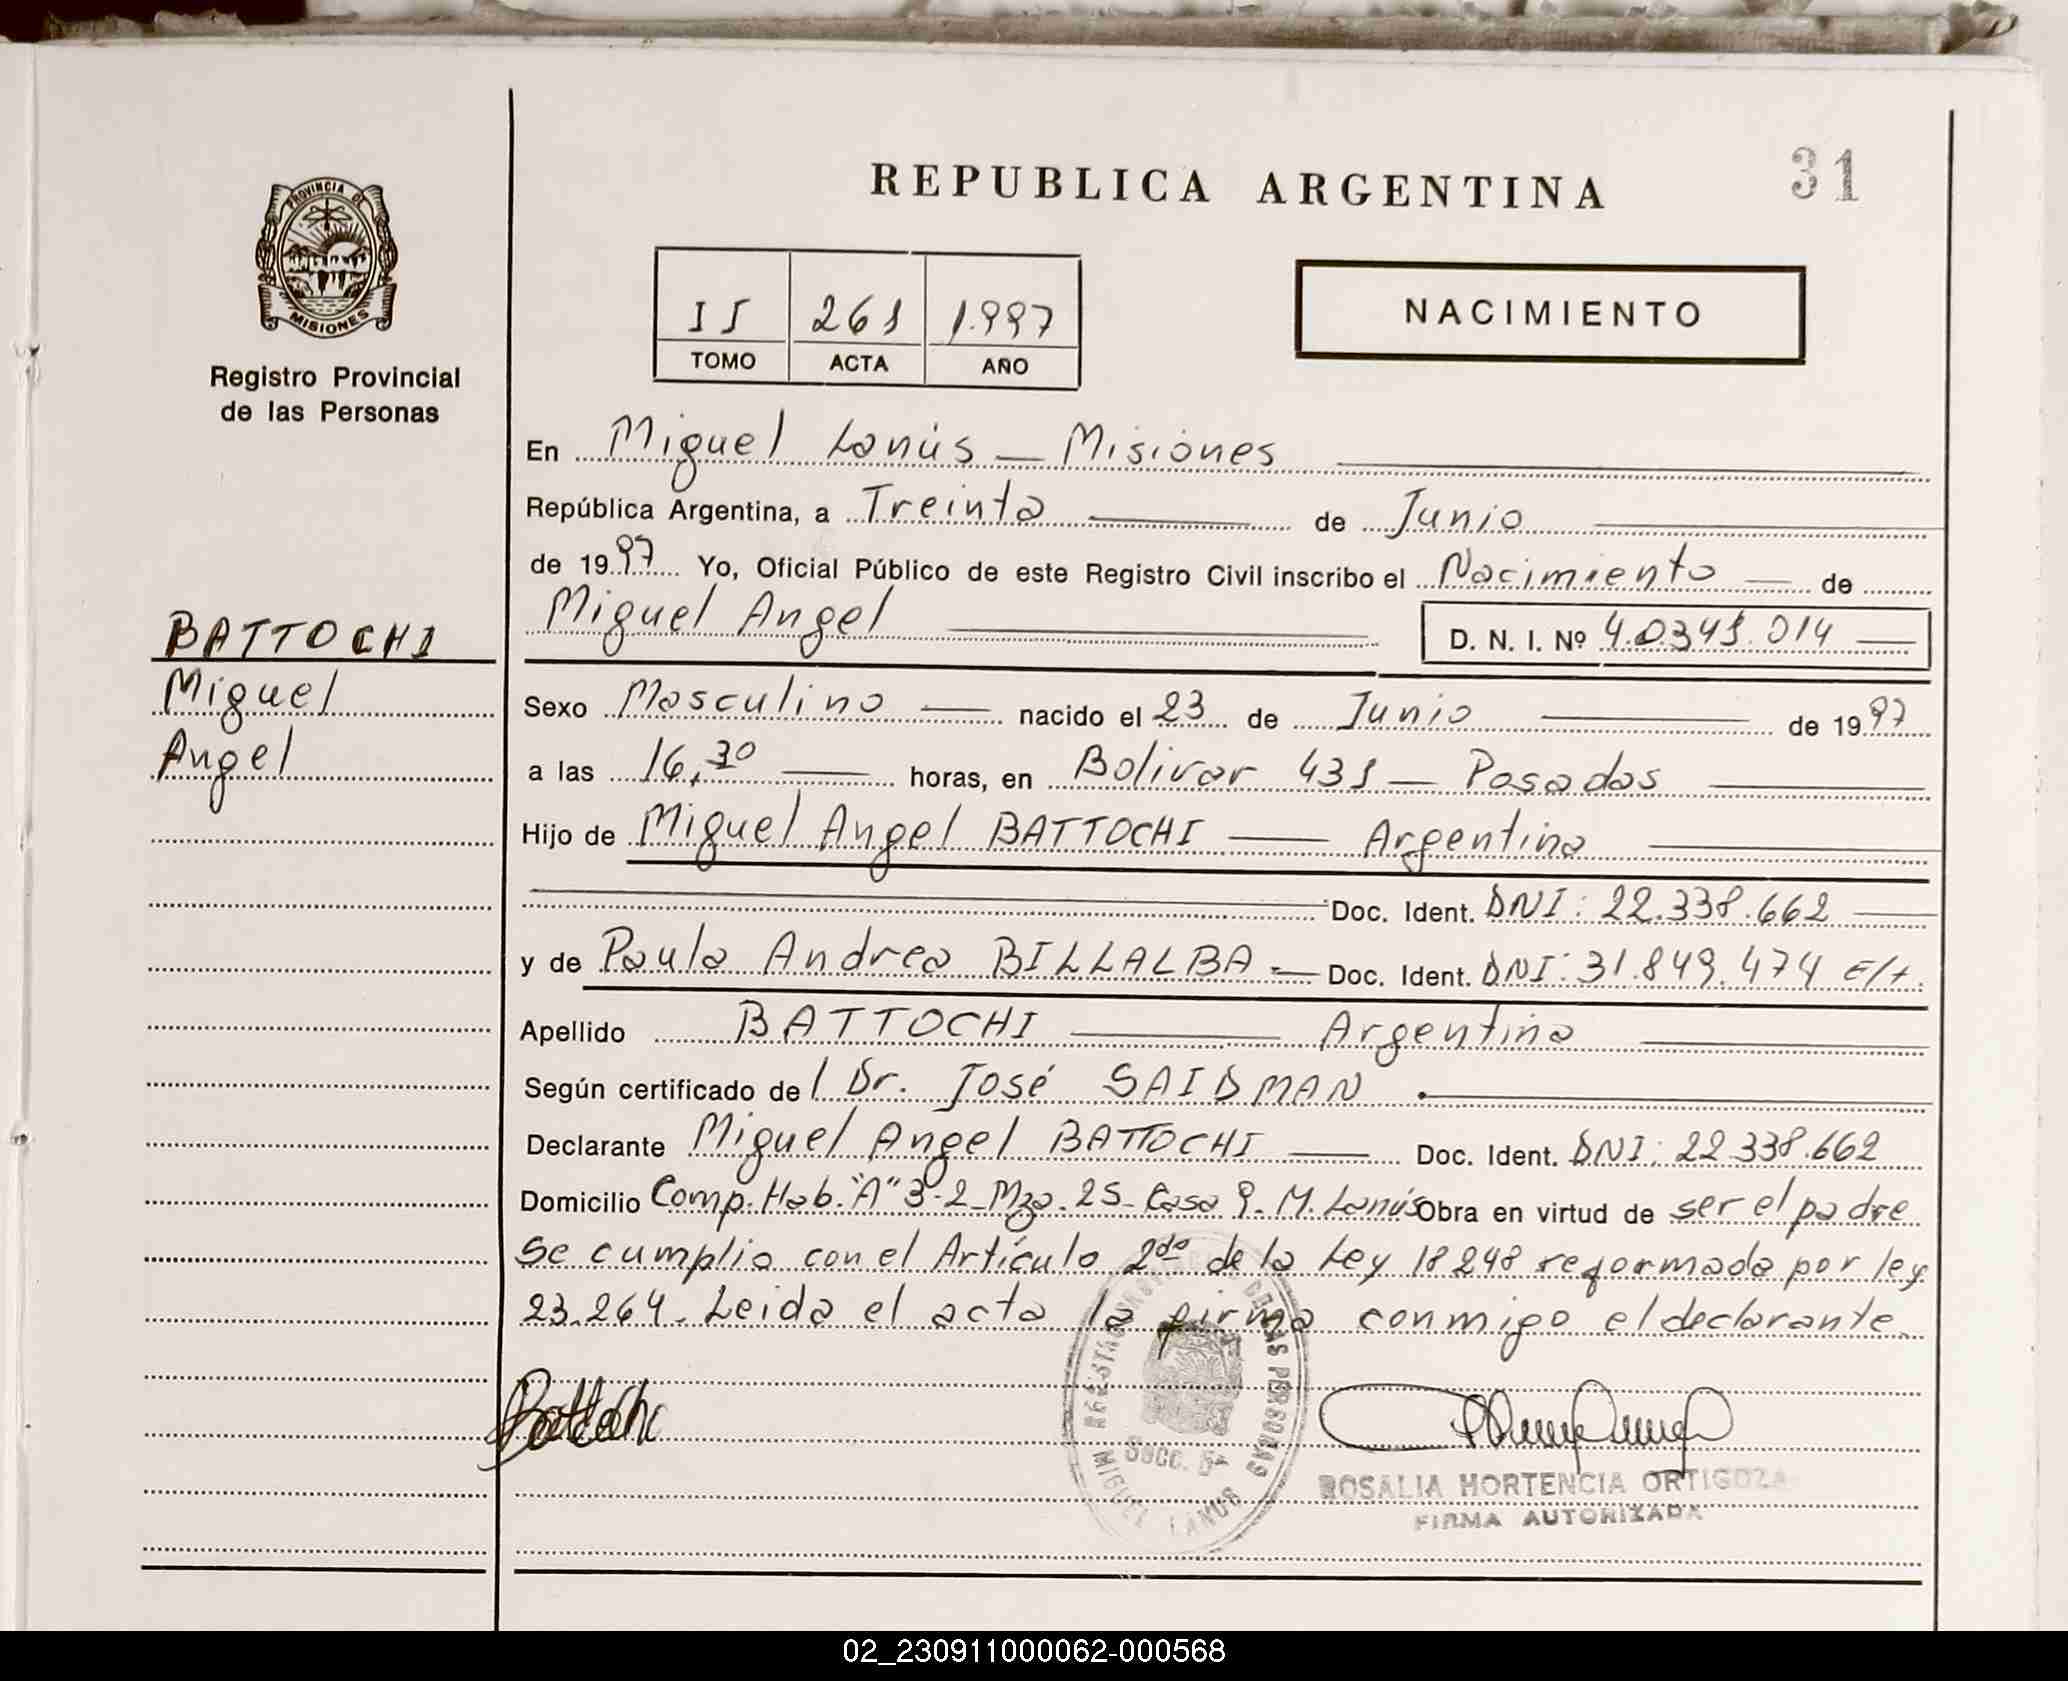 REPUBLICA ARGENTINA
31
PROVINCIA DE
MISIONES
Registro Provincial
de las Personas
II 261 1.997
TOMO ACTA AÑO
NACIMIENTO
En Miguel Lanús — Misiones
República Argentina, a Treinta de Junio
de 1997 Yo, Oficial Público de este Registro Civil inscribo el Nacimiento de
Miguel Angel D. N. I. Nº 40.341.014
BATTOCHI
Miguel
Angel
Sexo Masculino nacido el 23 de Junio de 1997
a las 16,30 horas, en Bolivar 431 — Posadas
Hijo de Miguel Angel BATTOCHI — Argentino
Doc. Ident. DNI: 22.338.662
y de Paula Andrea BILLALBA.— Doc. Ident. DNI: 31.849.474 E/t.
Apellido BATTOCHI Argentina
Según certificado del Dr. José SAIDMAN.
Declarante Miguel Angel BATTOCHI Doc. Ident. DNI: 22.338.662
Domicilio Comp. Hab. "A" 3-2-Mza. 25-Casa 9. M. Lanús Obra en virtud de ser el padre
Se cumplio con el Artículo 2do de la Ley 18248 reformada por ley
23.264. Leida el acta la firma conmigo el declarante.
Battochi
DE LAS PERSONAS
SUCC. 5ª
MIGUEL LANUS
ROSALIA HORTENCIA ORTIGOZA
FIRMA AUTORIZADA
02_230911000062-000568